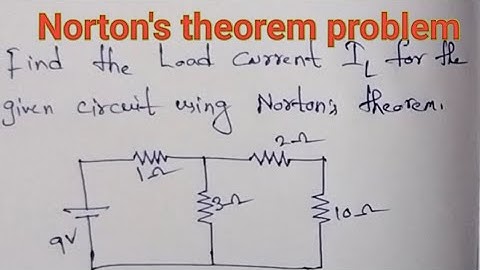 Norton's theorem problem
Find the Load current I_L for the
given circuit using Norton's theorem.
2Ω
1Ω
3Ω
10Ω
9V